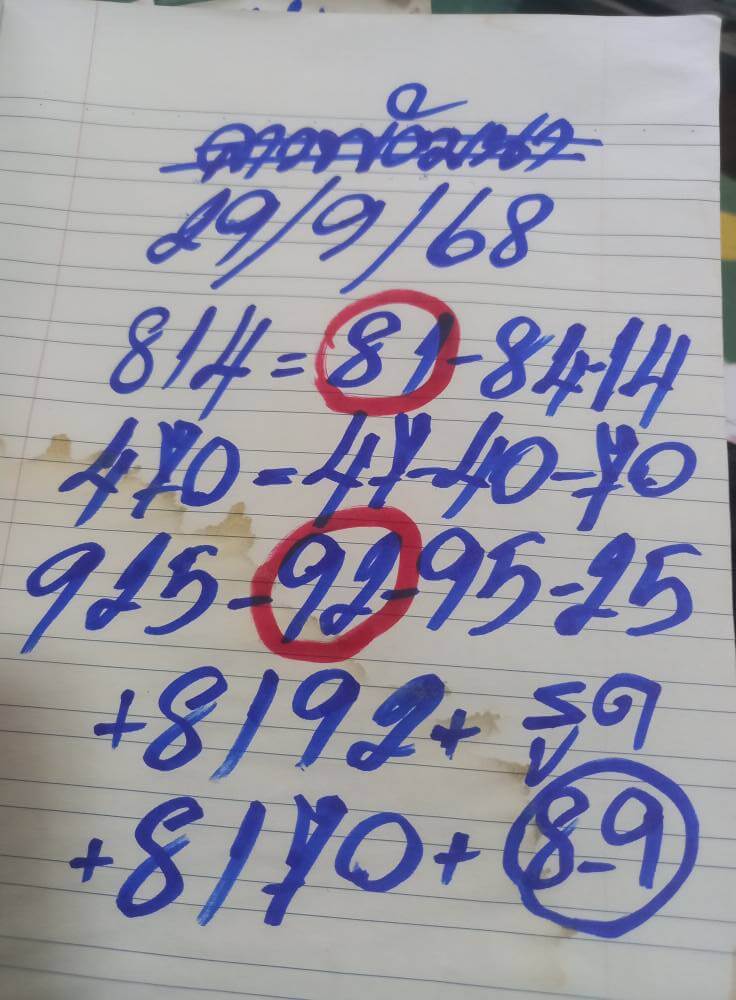 29/9/68
814=81-84-14
470=47-40-70
925-92-95-25
+8192+ รูด
+8170+ 8-9